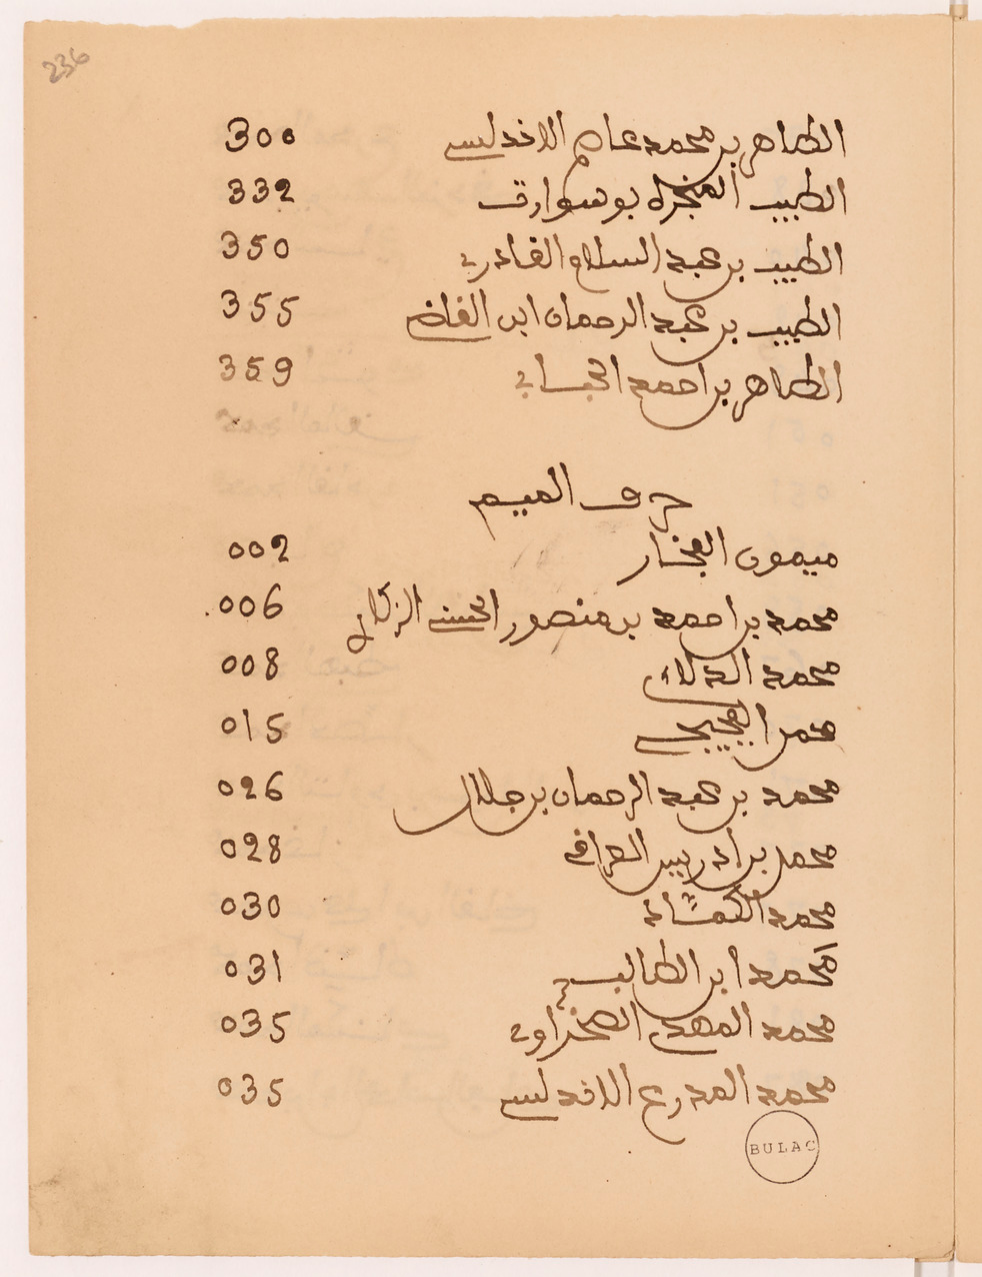 236
الطاهر بن محمد عاصم الاندلسي 300
الطبيب بوسوارف 332
الطيب بن عبد السلام القادري 350
الطيب بن عبد الرحمان ابن القاضي 355
الطاهر بن احمد 359
حرف الميم
ميمون الفخار 002
محمد بن احمد بن منصور الحسني 006
محمد الدلائي 008
عمر 015
محمد بن عبد الرحمان بن جلال 026
محمد بن ادريس العراقي 028
محمد 030
محمد ابن الطالب 031
محمد المهدي الصحراوي 035
محمد المدرع الاندلسي 035
BULAC